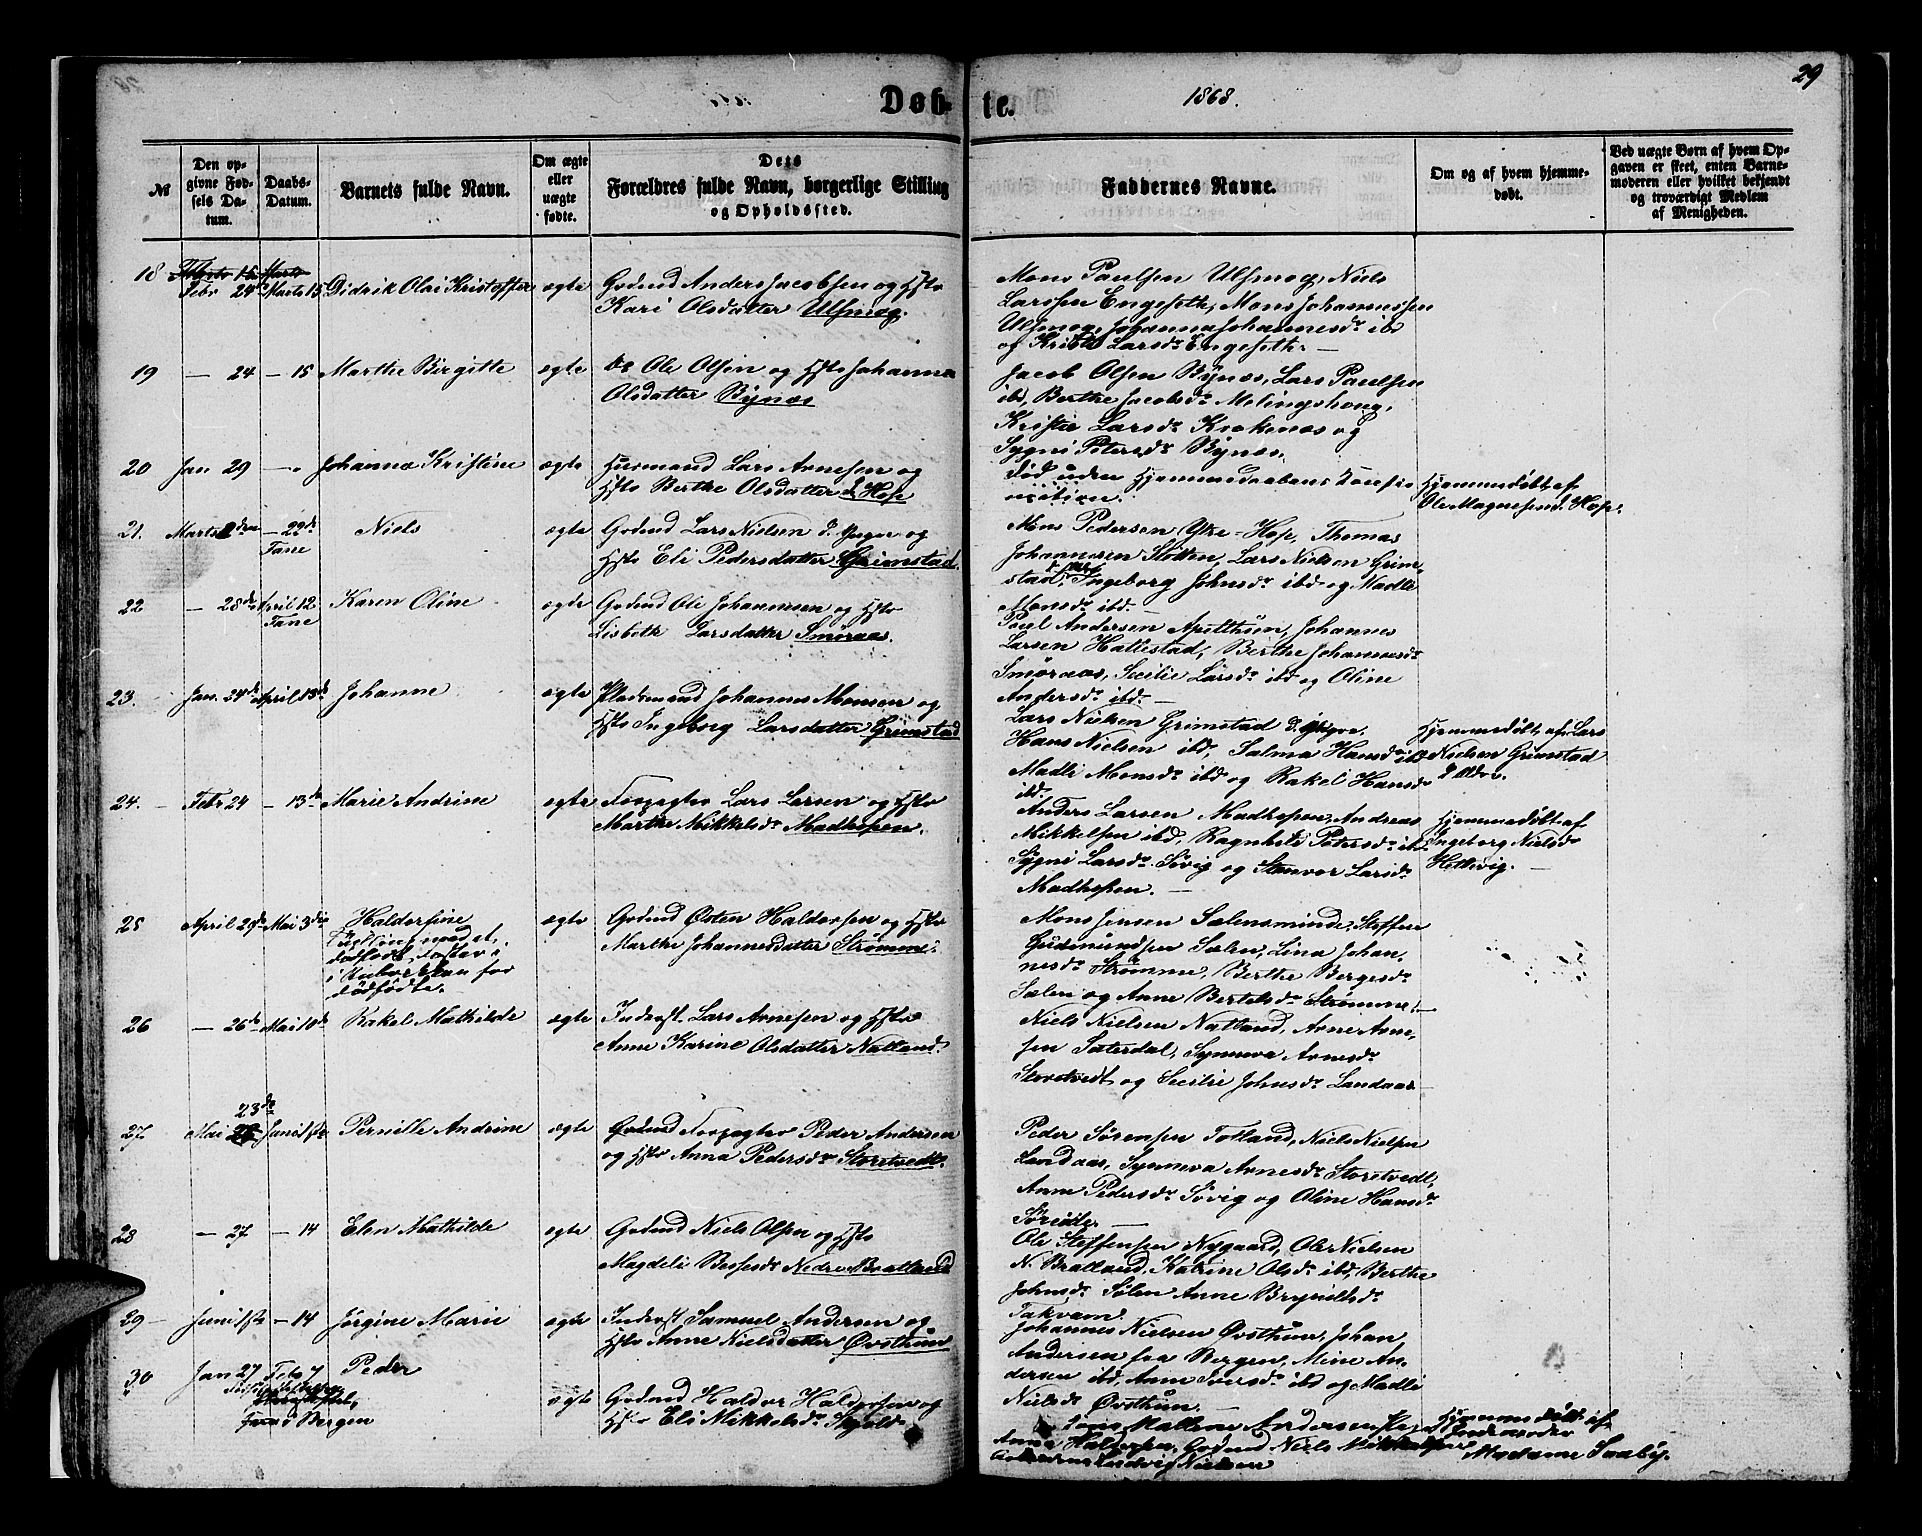 29
Døb- te. 1868.
№
Den op-
givne Fød-
sels Da-
tum.
Daabs-
Datum.
Barnets fulde Navn.
Om ægte
eller
uægte
fødte.
Dets
Forældres fulde Navn, borgerlige Stilling
og Opholdssted.
Faddernes Navne.
Om og af hvem hjemme-
døbt.
Ved uægte Børn af hvem Op-
gaven er skeet, enten Barne-
moderen eller hvilket bekjendt
og troværdigt Medlem
af Menigheden.
18 Febr 24 Marts 15 Didrik Olai Kristoffer ægte Gadmd Anders Jacobsen og Hst
Kari Olsdatter Ulsmog.
Mons Paulsen Ulsmog, Niels
Larsen Engeseth, Mons Johannessen
Ulsmog, Johanna Johannesdr ibd
og Larsdr Engeseth. —
19 — 24 — 15 Marthe Birgitte ægte Ole Olsen og Hst Johanna
Olsdatter Bynæs
Jacob Olsen Bynæs, Lars Paulsen
ibd, Berthe Jacobsdr
Larsdr Krokenæs og
Sygni Petersdr Bynæs.
20 Jan 29 — " Johanna Kristine ægte Huusmand Lars Arnesen og
Hst Berthe Olsdatter d. Hop
Død uden Hjemmedaabens
Hjemmedøbt af
Ole Magnesen d. Hop.
21. Marts 2den — 22de Niels ægte Gadmd Lars Nielsen d. Yngre og
Fane
Hst Eli Pedersdatter Grimstad.
Mons Pedersen Ytre-Hop, Thomas
Johannesen Lars Nielsen Grim-
stad, Ingeborg Johnsdr ibd og Madli
Monsdr ibd —
22 — 28de April 12 Karen Oline ægte Gadmd Ole Johannesen og Hst
Fane
Lisbeth Larsdatter Smøraas.
Poul Andersen Apelthun, Johannes
Larsen Hattestad, Berthe Johannesdr
Smøraas, Secilie Larsdr ibd og Oline
Andersdr ibd. —
23. Jan. 24de April 13de Johanne ægte Pladsmand Johannes Monsen og
Hst Ingeborg Larsdatter Grimstad
Lars Nielsen Grimstad d. Yngre,
Hans Nielsen ibd, Salma Hansdr ibd
Madli Monsdr ibd og Rakel Hansdr
ibd.
Hjemmedøbt af Lars
Nielsen Grimstad
d. Ældre.
24. — Febr 24 — 13de Marie Andrine ægte Lars Larsen og Hst
Marthe Mikkelsdr Madhopen.
Anders Larsen Madhopen, Andreas
Mikkelsen ibd, Ragnhild Petersdr ibd
Sygni Larsdr Søvig og Larsdr
Madhopen. —
Hjemmedøbt af
Ingeborg Nielsdr
Hellevig. —
25 April 29de Mai 3die Haldersine ægte Gadmd Østen Haldersen og Hst
Marthe Johannesdatter Strømme.
Tvilling med et
dødfødt,
i for
dødfødte.
Mons Jensen Sælensminde, Steffen
Gudmundsen Sælen, Lina Johan-
nesdr Strømme, Berthe Bergesdr
Sælen og Anne Bertelsdr Strømme. —
26 — 26de Mai 10de Rakel Mathilde ægte Inderst Lars Arnesen og Hst
Anne Karine Olsdatter Natland.
Niels Nielsen Natland, Arne Arne-
sen Sæterdal, Synneva Arnesdr
Storetvedt og Secilie Johnsdr Landaas
27 Mai 23de Juni 1ste Pernille Andrine ægte Peder Andersen
og Hst Anna Pedersdr Storetvedt.
Peder Sørensen Totland, Niels Nielsen
Landaas, Synneva Arnesdr Storetvedt,
Anne Pedersdr Søvig og Oline Hansdr
28 — 27 — 14 Elen Mathilde ægte Gadmd Niels Olsen og Hst
Magdeli Nedre Bratland
Ole Steffensen Nygaard, Ole Nielsen
N. Bratland, Katrine Olsdr ibd, Berthe
Johnsdr Sølen Anne Bryniltsdr
Takvam.
29 — Juni 1ste — 14 Jørgine Marie ægte Inderst Samuel Andersen og
Hst Anne Nielsdatter Øvsthun
Johannes Nielsen Øvsthun, Johan
Andersen fra Bergen, Mine An-
dersen ibd, Anne Iversdr ibd og Madli
Nielsdr Øvsthun. —
30 Jan 27 Febr 7 Peder ægte Gadmd Haldor Haldorsen og
Hst Eli Mikkelsdr Skjold
Bergen
Andersen
Anna Haldersen, Gadmd Niels Mikkelsen
Ludvig Nielsen
Hjemmedøbt af
Jordemoder
Madame Saaby.